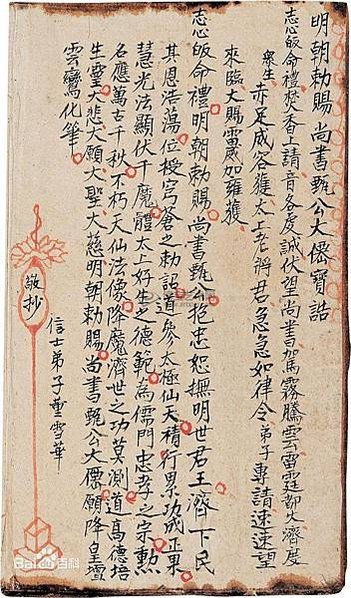 明朝勅賜 尚書甄公大儒寶誥
志心皈命禮焚香上請音各處誠伏望尚書駕霧騰雲雷霆都大濟度
衆生 赤足成容獲太上老將君急急如律令弟子專請速速望
來臨大賜雷威加擁護
志心皈命禮明朝勅賜 尚書甄公抱忠恕撫明世君王濟下民
其恩浩蕩位授穹倉之勅詔道參太極仙天積行累功成正果
慧光法顯伏千魔體太上好生之德範為儒門忠孝之宗勲
名應萬古千秋不朽天仙法像降魔濟世之功莫測道高德培
生靈大悲大願大聖大慈明朝勅賜 尚書甄公大儒願降皇壇
雲鸞化筆
敬抄
信士弟子董雪華
Baidu百科